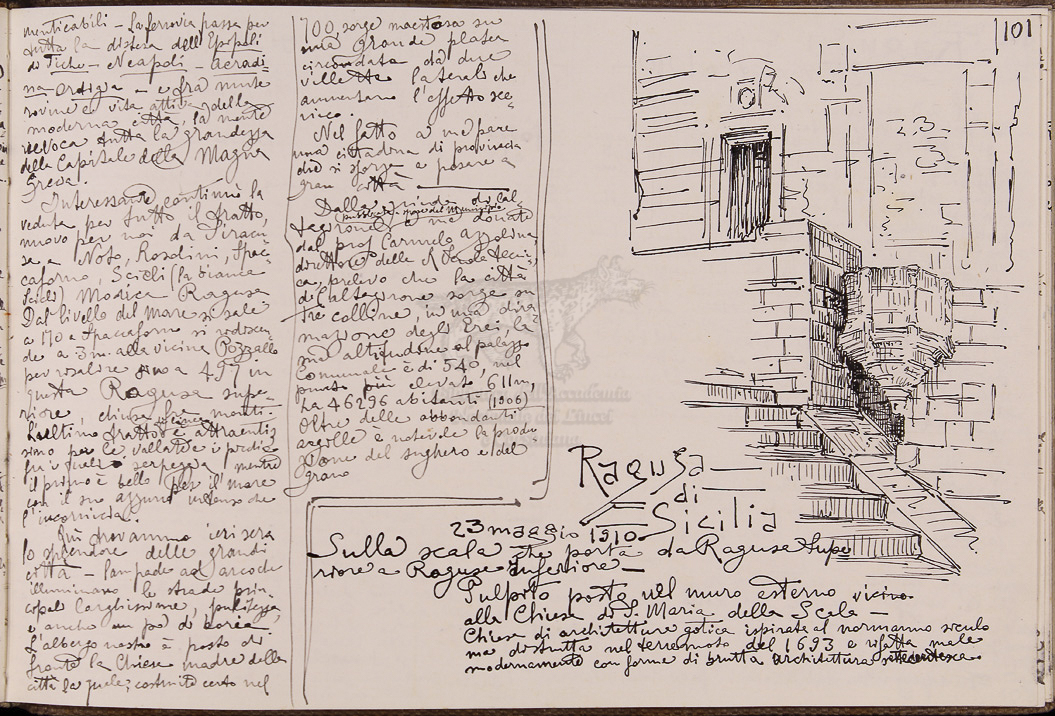 menticabili – La ferrovia passa per
tutta la distesa dell'Epipoli
di Tiche – Neapoli – Acradi-
na – Ortigia – e fra morte
rovine e vita attiva della
moderna città, la mente
rievoca tutta la grandezza
della Capitale della Magna
Grecia.
Interessante continua la
veduta per tutto il tratto,
nuovo per noi da Siracu-
sa a Noto, Rosolini, Spac-
caforno, Scicli (la
Scicli) Modica Ragusa.
Dal livello del mare si sale
a 170 a Spaccaforno si ridiscen-
de a 3 m. alla vicina Pozzallo
per risalire sino a 497 in
questa Ragusa supe-
riore chiusa fra monti.
L'ultimo tratto è attraentis-
simo per le vallate i
fra i quali serpeggia, mentre
il primo è bello per il mare
con il suo azzurro intenso che
l'incornicia.
Qui trovammo ieri sera
lo splendore delle grandi
città – lampade ad arco che
illuminano le strade prin-
cipali larghissime, pulitezza
e anche un po' di boria.
L'albergo nostro è posto di
fronte la Chiesa madre della
città la quale, costruita certo nel
700, sorge maestosa su
una grande platea
circondata da due
villette laterali che
aumentano l'effetto sce-
nico.
Nel fatto a me pare
una cittadina di provincia
che si sforza a posare a
gran città
Dalla guida di Cal-
pubblicata a spese del Municipio
tagirone a me donata
dal prof Carmelo Azzolina,
direttore della R Scuola tecni-
ca, prelevo che la città
di Caltagirone sorge su
tre colline, in una dira-
mazione degli Erei, la
sua altitudine al palazzo
Comunale è di 540, nel
punto più elevato 611 m.
Ha 46296 abitanti (1906)
Oltre delle abbondanti
argille è notevole la produ
zione del sughero e del
grano
101
Ragusa
di
Sicilia
23 maggio 1910
Sulla scala che porta da Ragusa Supe
riore a Ragusa Inferiore –
Pulpito posto nel muro esterno vicino
alla Chiesa di S. Maria della Scala –
Chiesa di architettura gotica ispirata al normanno siculo
ma distrutta nel terremoto del 1693 e rifatta male
modernamente con forme di brutta architettura settecentesca